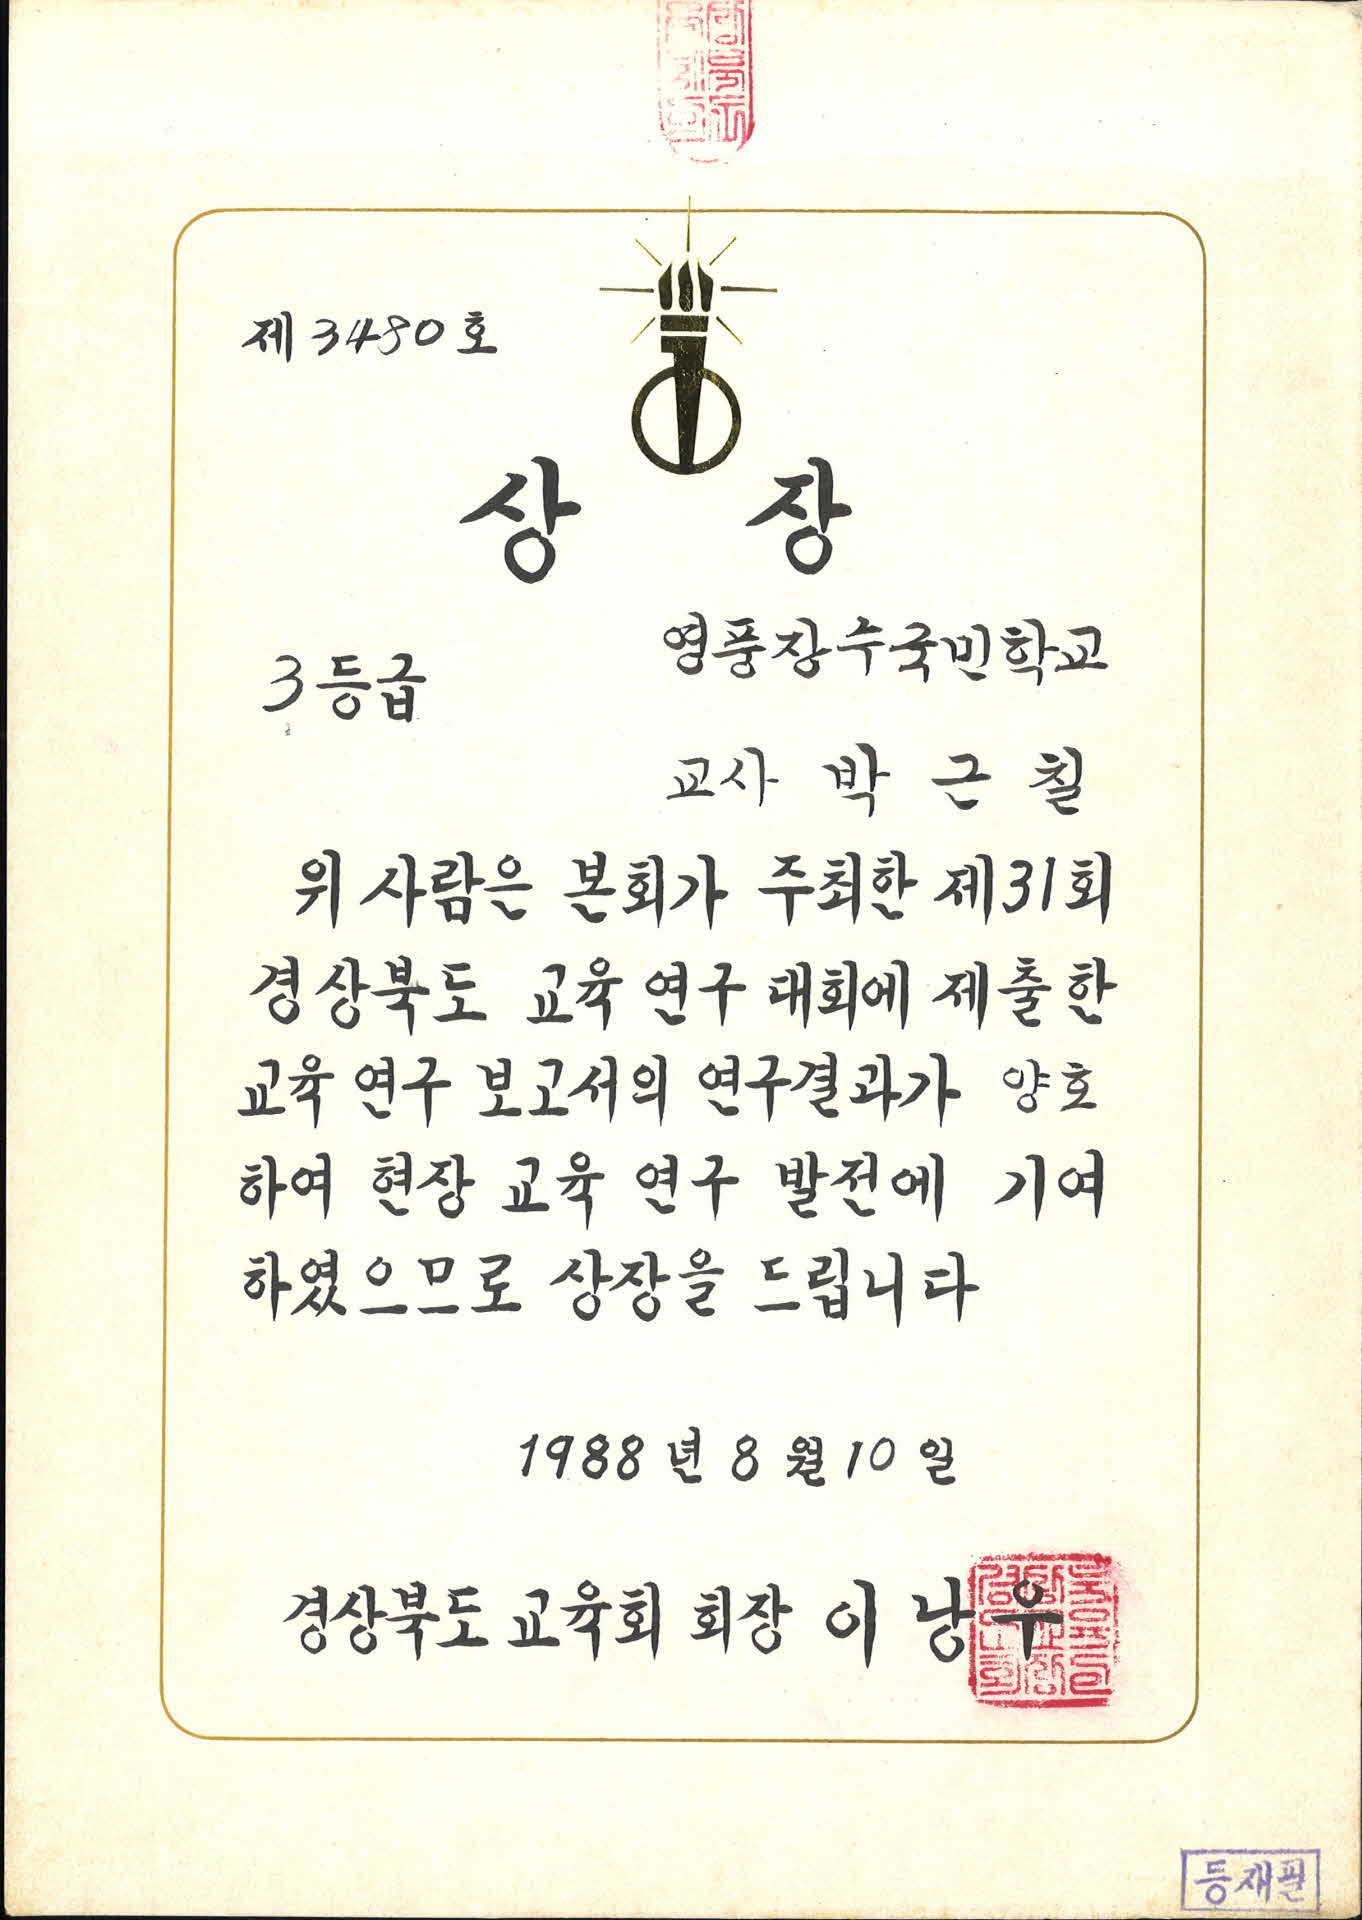 제 3480 호
상 장
3등급
영풍장수국민학교
교사 박 근 칠
위 사람은 본회가 주최한 제31회
경상북도 교육 연구 대회에 제출한
교육 연구 보고서의 연구결과가 양호
하여 현장 교육 연구 발전에 기여
하였으므로 상장을 드립니다
1988 년 8 월 10 일
경상북도 교육회 회장 이 낭 우
등재필